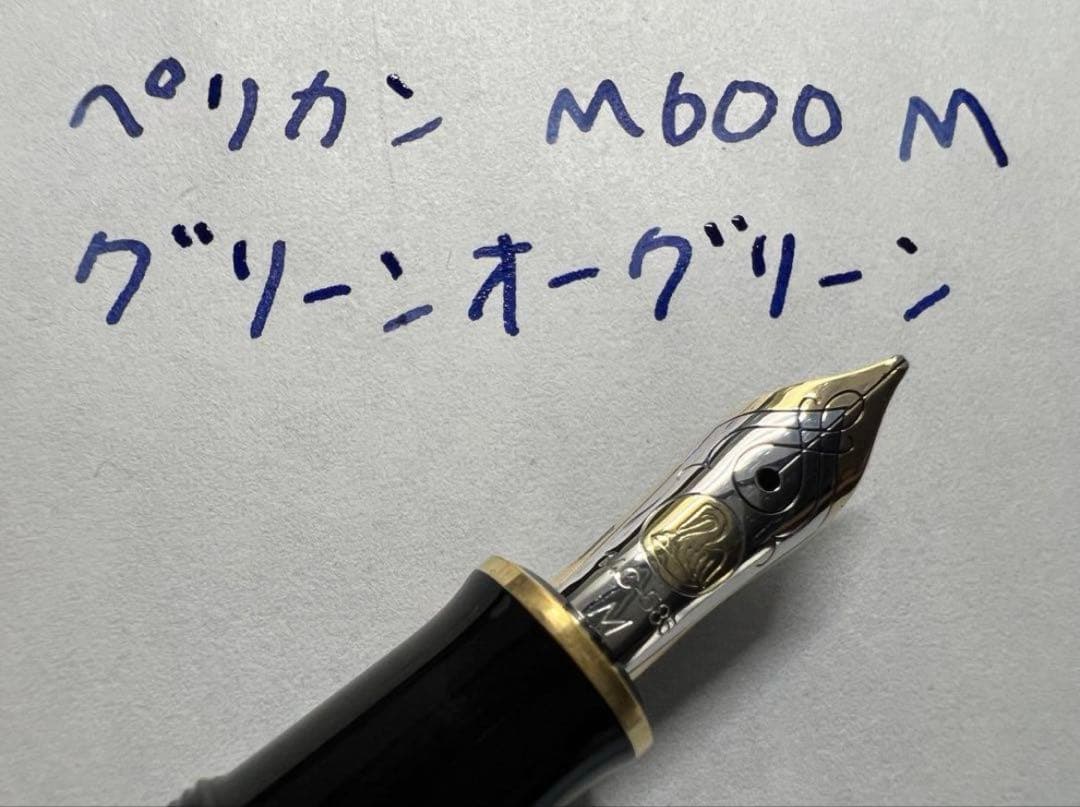 ペリカン M600 M
グリーンオーグリーン
M